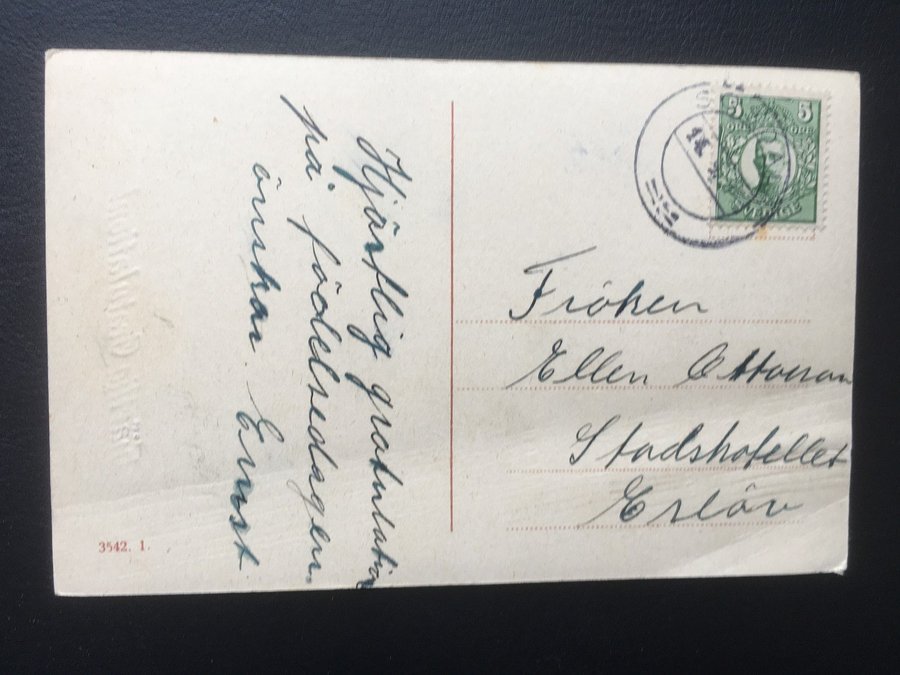 Hjärtlig gratulation
på födelsedagen.
önskar. Ernst
5 5
ÖRE ÖRE
SVERIGE
Fröken
Ellen Ottosson
Stadshotellet
Eslöv
3542. 1.